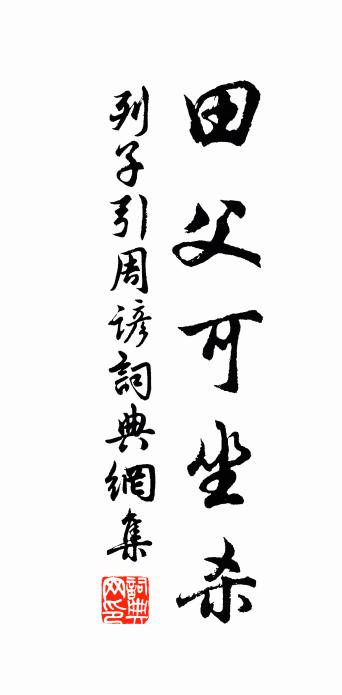 田父可坐杀
列子引周諺詞典網集
詞典網印